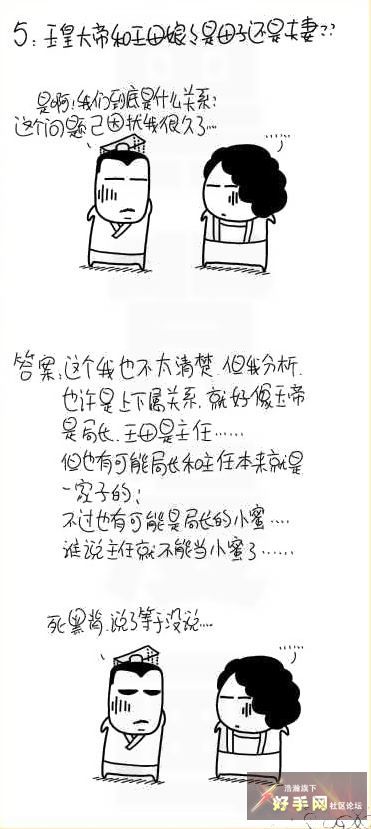 5：玉皇大帝和王母娘々是母子还是夫妻??
是啊!我们到底是什么关系?
这个问题已困扰我很久了…
答案:这个我也不太清楚.但我分析.
也许是上下属关系.就好像玉帝
是局长.王母是主任……
但也有可能局长和主任本来就是
一窝子的;
不过也有可能是局长的小蜜….
谁说主任就不能当小蜜了……
死黑背.说了等于没说….
浩瀚旗下
好手网社区论坛